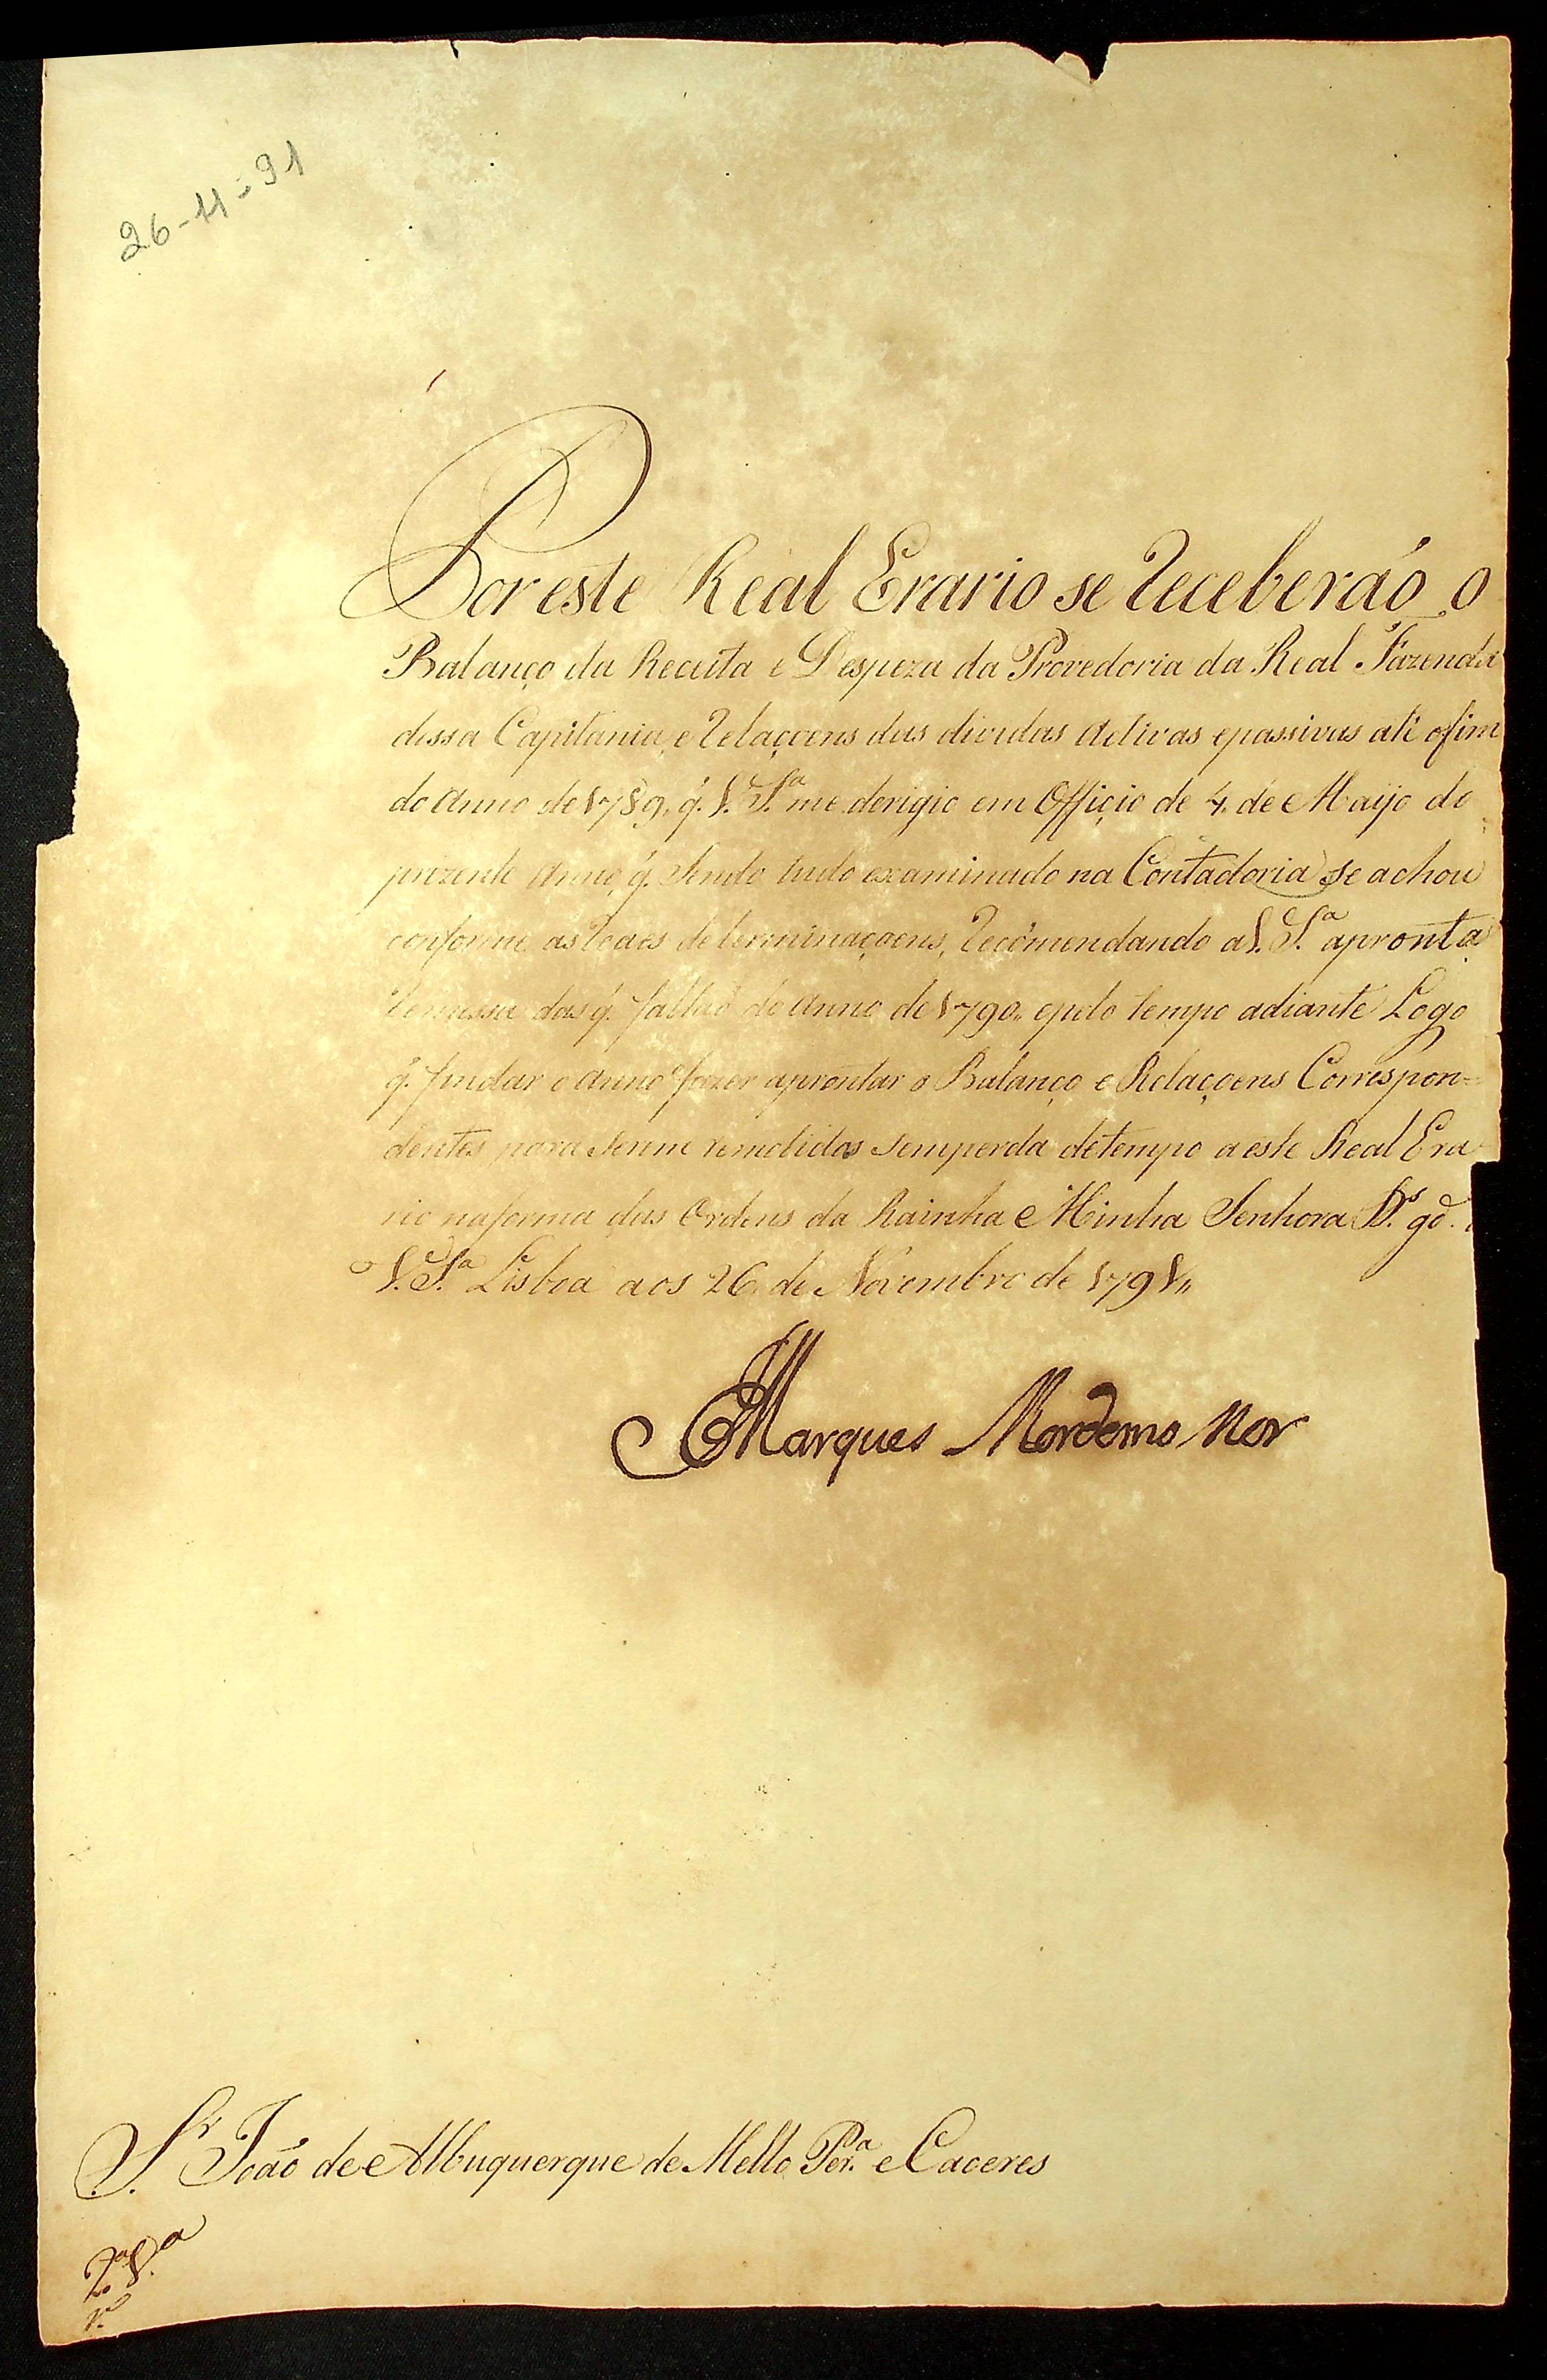 26-11-91
Por este Real Erario se receberaó o
Balanço da Receita e Despeza da Provedoria da Real Fazenda
dessa Capitania, e relaçoens das dividas activas epassivas até ofim
do Anno de 1789, q̃. V. S.ª me derigio em Officio de 4. de Maijo do
prezente Anno, q̃. sendo tudo examinado na Contadoria se achou
conforme as reaes determinaçoens, recómendando a V. S.ª apronta
remessa das q̃. faltaõ do Anno de 1790., epelo tempo adiante Logo
q̃. findar o Anno fazer aprontar o Balanço e Relaçoens Correspon=
dentes para serme remetidos semperda detempo a este Real Era
rio naforma das Ordens da Rainha Minha Senhora D.s gd.e
V. S.ª Lisboa aos 26. de Novembro de 1791,,
Marques Mordomo Mor
S.r Joaõ de Albuquerque de Mello Per.ª e Caceres
2.ª V.ª